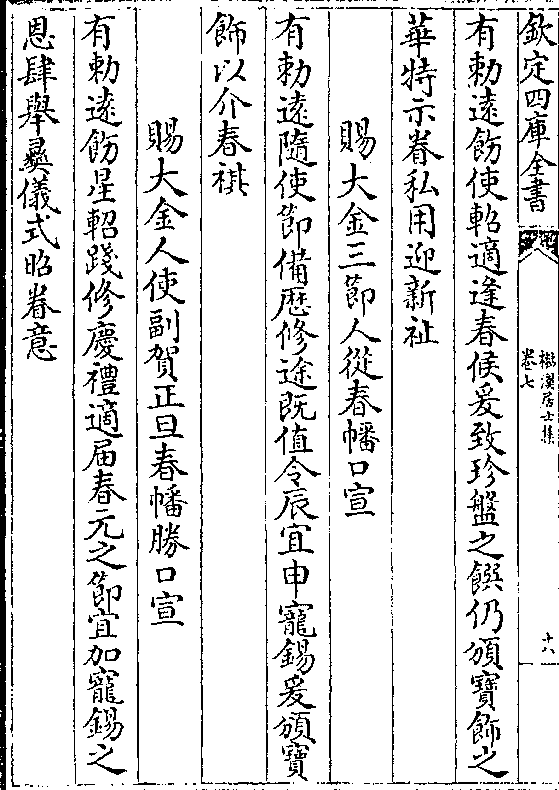 欽定四庫全書
檆溪居士集
卷七
十六
有勅遠飭使軺適逢春候爰致珍盤之饌仍頒寶飾之
華特示眷私用迎新祉
賜大金三節人從春幡口宣
有勅遠隨使節備歴修途既值令辰宜申寵錫爰頒寶
飾以介春祺
賜大金人使副賀正旦春幡勝口宣
有勅遠飭星軺踐修慶禮適届春元之節宜加寵錫之
恩肆舉彞儀式昭眷意